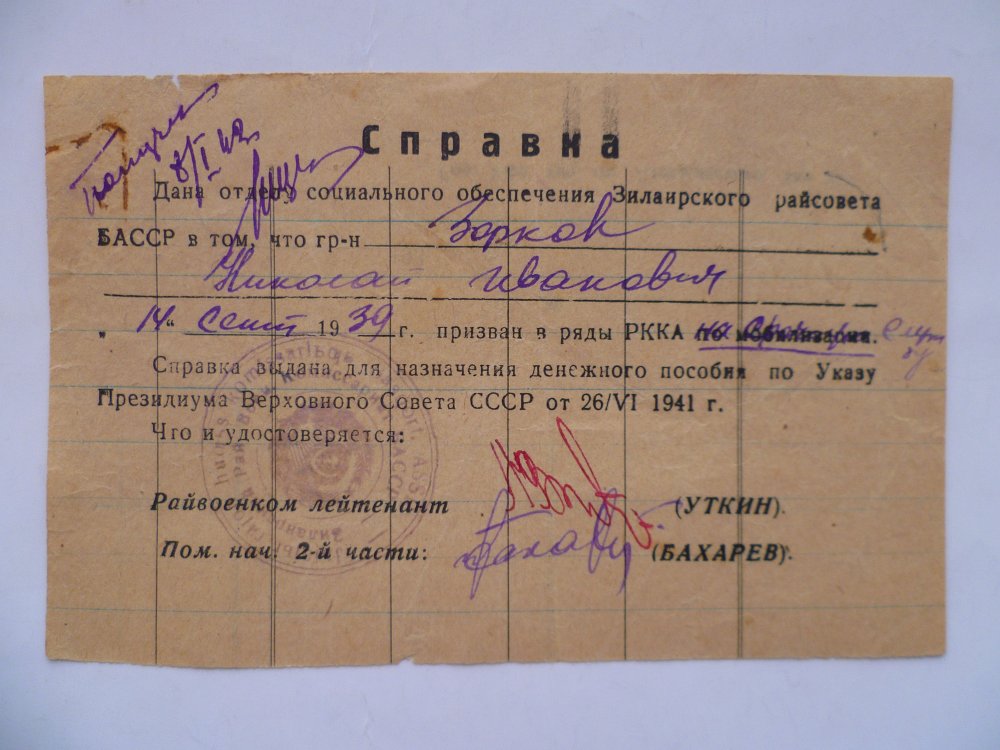 8/I 42
Справка
Дана отделу социального обеспечения Зилаирского райсовета
БАССР в том, что гр-н Зорков
Николай Иванович
„ 14 “ сент 1939 г. призван в ряды РККА по мобилизации. на срочную служ
бу
Справка выдана для назначения денежного пособия по Указу
Президиума Верховного Совета СССР от 26/VI 1941 г.
Что и удостоверяется:
Райвоенком лейтенант (УТКИН).
Пом. нач. 2-й части: (БАХАРЕВ).